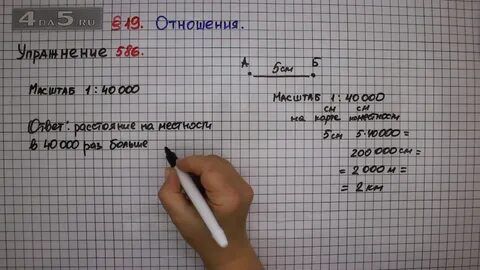 4DA5.RU
§19. Отношения.
Упражнение 586.
Масштаб 1 : 40 000
Ответ: расстояние на местности
в 40 000 раз больше
А Б
5см
Масштаб 1 : 40 000
см см
на карте на местности
5см 5·40000 =
200 000 см =
= 2 000 м =
= 2 км